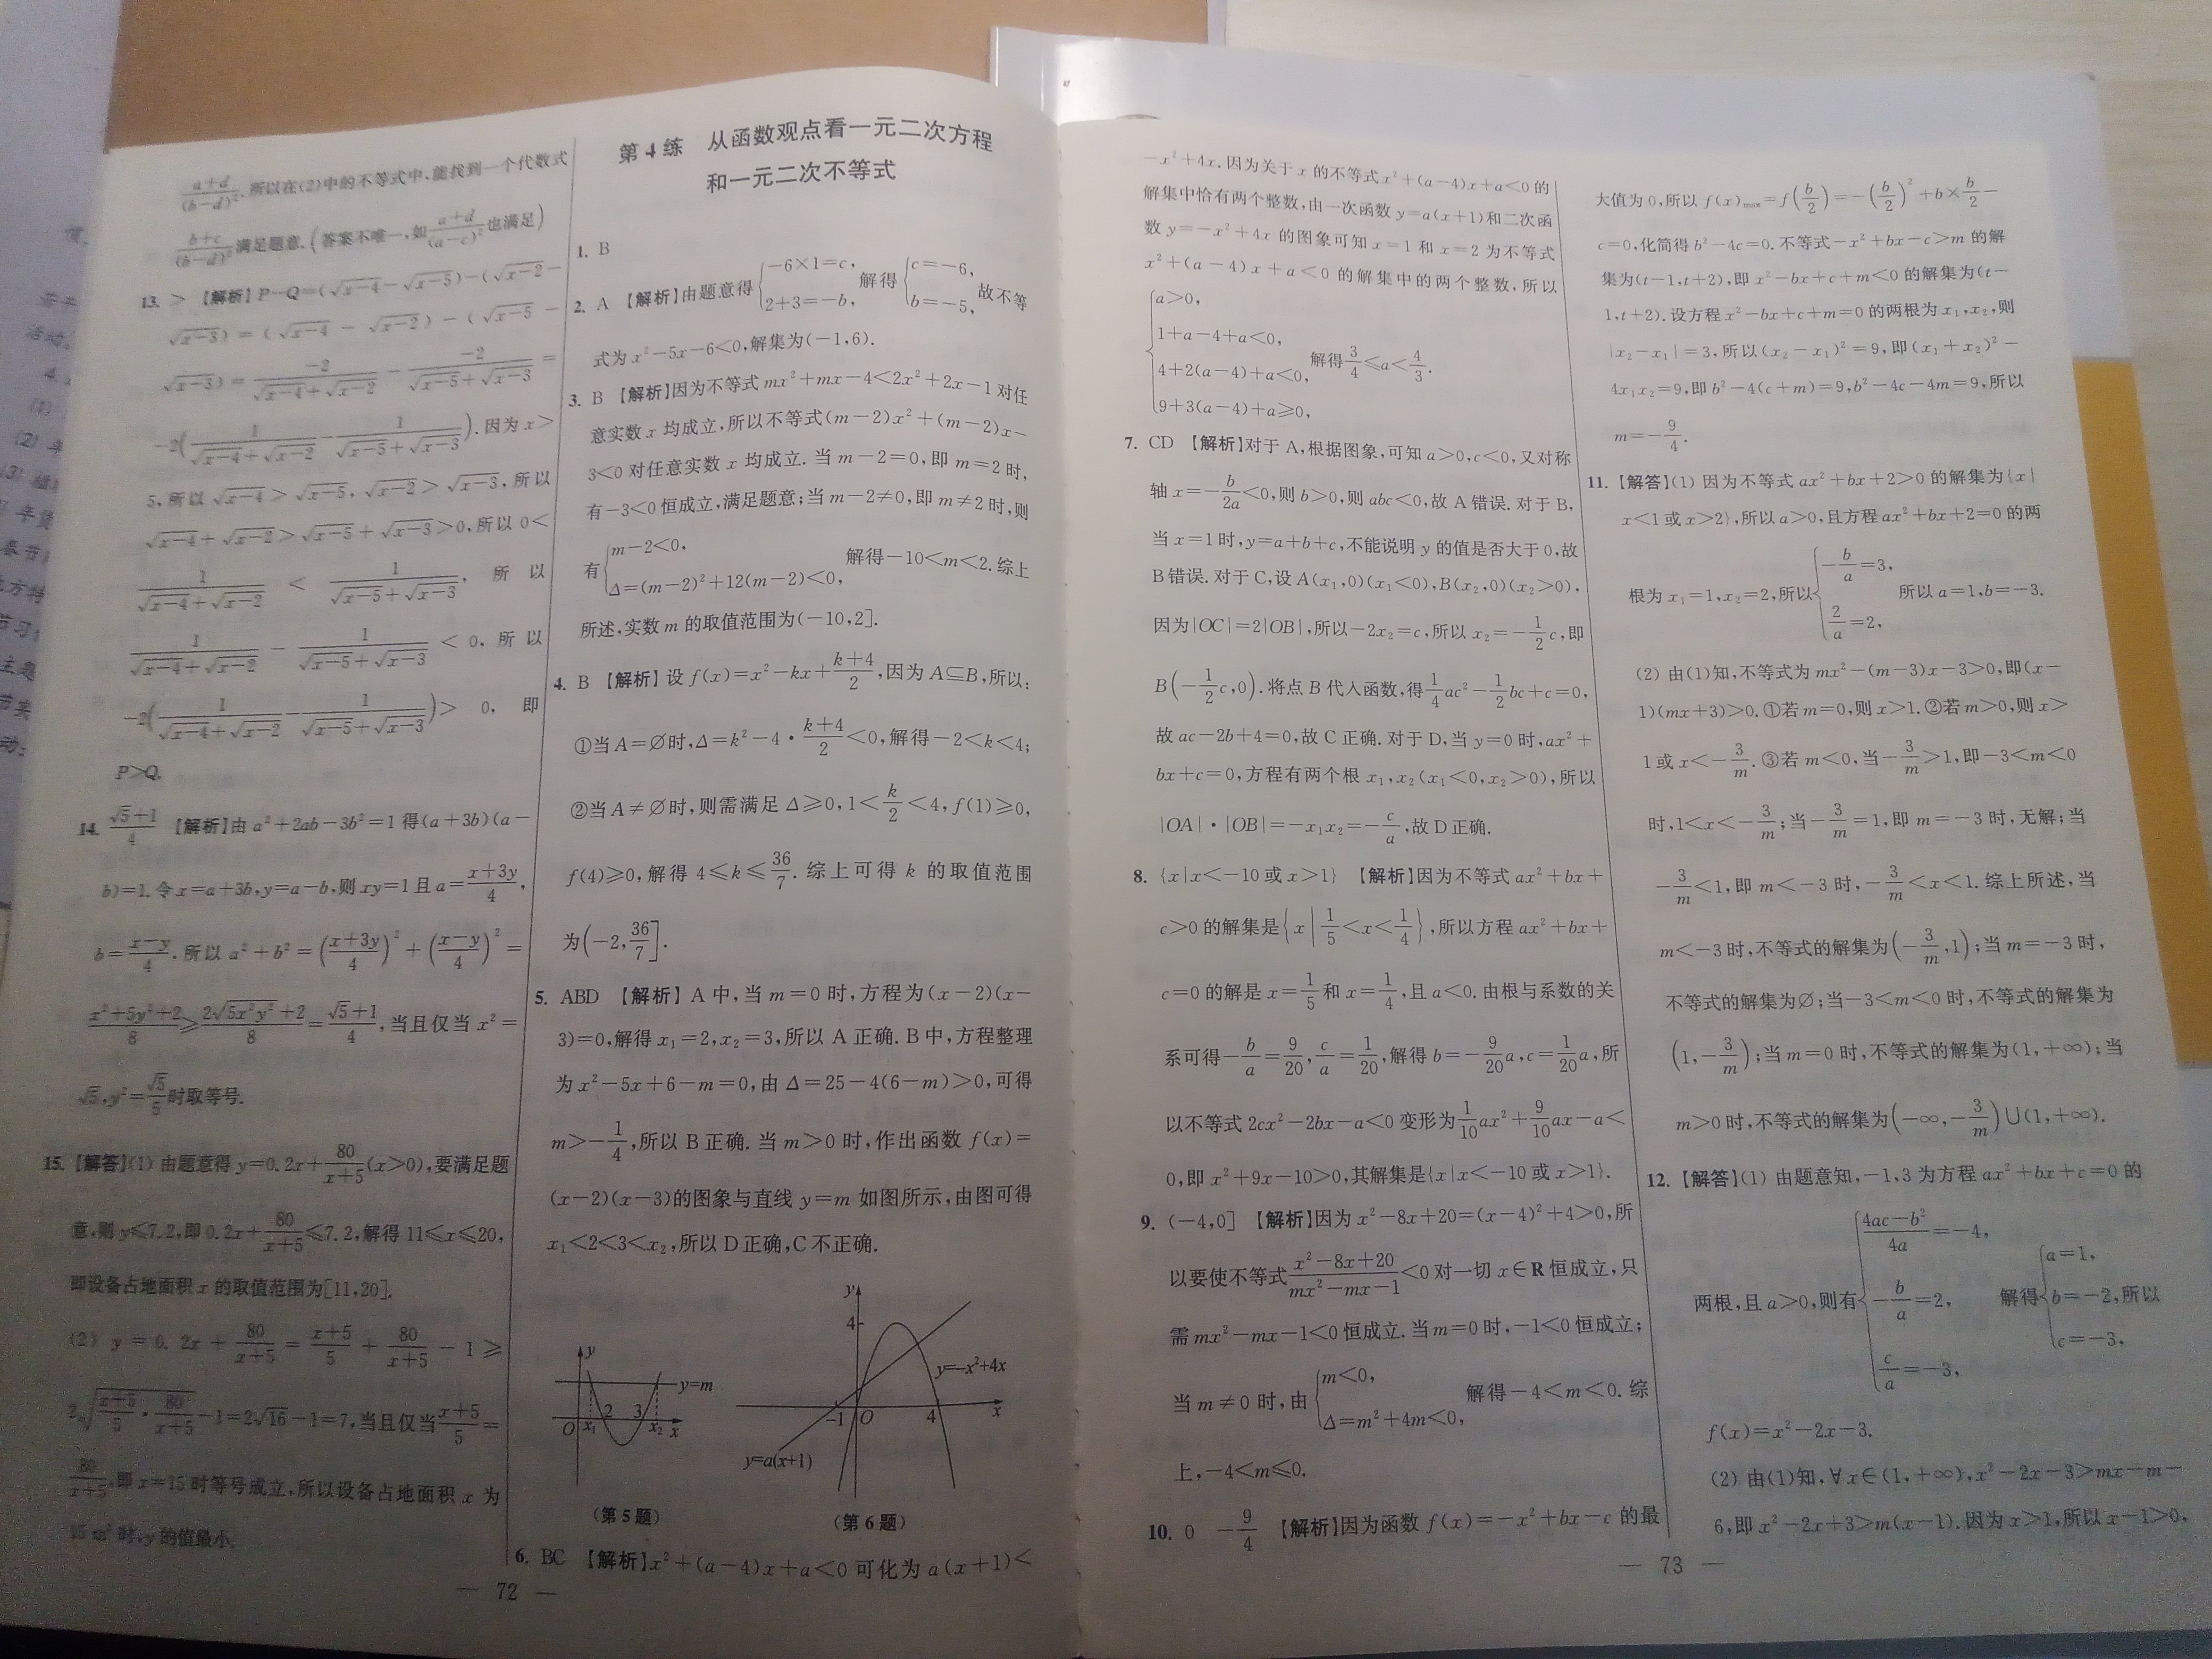 $\frac{a+d}{(b-d)^2}$.所以在(2)中的不等式中,能找到一个代数式
$\frac{b+c}{(b-d)^2}$满足题意.(答案不唯一,如$\frac{a+d}{(a-c)^2}$也满足)
13. > 【解析】P-Q=($\sqrt{x-4}-\sqrt{x-5}$)-($\sqrt{x-2}-$
$\sqrt{x-3}$)=($\sqrt{x-4}-\sqrt{x-2}$)-($\sqrt{x-5}-$
$\sqrt{x-3}$)=$\frac{-2}{\sqrt{x-4}+\sqrt{x-2}}-\frac{-2}{\sqrt{x-5}+\sqrt{x-3}}=$
$-2(\frac{1}{\sqrt{x-4}+\sqrt{x-2}}-\frac{1}{\sqrt{x-5}+\sqrt{x-3}})$.因为x>
5,所以$\sqrt{x-4}>\sqrt{x-5}$,$\sqrt{x-2}>\sqrt{x-3}$,所以
$\sqrt{x-4}+\sqrt{x-2}>\sqrt{x-5}+\sqrt{x-3}>0$,所以0<
$\frac{1}{\sqrt{x-4}+\sqrt{x-2}}<\frac{1}{\sqrt{x-5}+\sqrt{x-3}}$, 所以
$\frac{1}{\sqrt{x-4}+\sqrt{x-2}}-\frac{1}{\sqrt{x-5}+\sqrt{x-3}}<0$,所以
$-2(\frac{1}{\sqrt{x-4}+\sqrt{x-2}}-\frac{1}{\sqrt{x-5}+\sqrt{x-3}})>0$, 即
P>Q.
14. $\frac{\sqrt{5}+1}{4}$ 【解析】由a²+2ab-3b²=1得(a+3b)(a-
b)=1.令x=a+3b,y=a-b,则xy=1且a=$\frac{x+3y}{4}$,
b=$\frac{x-y}{4}$.所以a²+b²=$(\frac{x+3y}{4})^2+(\frac{x-y}{4})^2$=
$\frac{x^2+5y^2+2}{8}≥\frac{2\sqrt{5x^2y^2}+2}{8}=\frac{\sqrt{5}+1}{4}$,当且仅当x²=
$\sqrt{5}$,y²=$\frac{\sqrt{5}}{5}$时取等号.
15.【解答】(1) 由题意得y=0.2x+$\frac{80}{x+5}$(x>0),要满足题
意,则y≤7.2,即0.2x+$\frac{80}{x+5}$≤7.2,解得11≤x≤20,
即设备占地面积x的取值范围为[11,20].
(2) y=0.2x+$\frac{80}{x+5}=\frac{x+5}{5}+\frac{80}{x+5}-1≥$
$2\sqrt{\frac{x+5}{5}·\frac{80}{x+5}}-1=2\sqrt{16}-1=7$,当且仅当$\frac{x+5}{5}$=
$\frac{80}{x+5}$,即x=15时等号成立,所以设备占地面积x为
15 m²时,y的值最小.
— 72 —
第4练 从函数观点看一元二次方程
和一元二次不等式
1. B
2. A 【解析】由题意得$\begin{cases}-6×1=c,\\2+3=-b,\end{cases}$解得$\begin{cases}c=-6,\\b=-5,\end{cases}$故不等
式为x²-5x-6<0,解集为(-1,6).
3. B 【解析】因为不等式mx²+mx-4<2x²+2x-1对任
意实数x均成立,所以不等式(m-2)x²+(m-2)x-
3<0对任意实数x均成立.当m-2=0,即m=2时,
有-3<0恒成立,满足题意;当m-2≠0,即m≠2时,则
有$\begin{cases}m-2<0,\\Δ=(m-2)^2+12(m-2)<0,\end{cases}$解得-10<m<2.综上
所述,实数m的取值范围为(-10,2].
4. B 【解析】设f(x)=x²-kx+$\frac{k+4}{2}$,因为A⊆B,所以:
①当A=∅时,Δ=k²-4·$\frac{k+4}{2}$<0,解得-2<k<4;
②当A≠∅时,则需满足Δ≥0,1<$\frac{k}{2}$<4,f(1)≥0,
f(4)≥0,解得4≤k≤$\frac{36}{7}$.综上可得k的取值范围
为$(-2,\frac{36}{7}]$.
5. ABD 【解析】A中,当m=0时,方程为(x-2)(x-
3)=0,解得x₁=2,x₂=3,所以A正确.B中,方程整理
为x²-5x+6-m=0,由Δ=25-4(6-m)>0,可得
m>-$\frac{1}{4}$,所以B正确.当m>0时,作出函数f(x)=
(x-2)(x-3)的图象与直线y=m如图所示,由图可得
x₁<2<3<x₂,所以D正确,C不正确.
y y=m O x₁ 2 3 x₂ x
(第5题)
y 4 y=-x²+4x -1 O 4 x y=a(x+1)
(第6题)
6. BC 【解析】x²+(a-4)x+a<0可化为a(x+1)<
-x²+4x.因为关于x的不等式x²+(a-4)x+a<0的
解集中恰有两个整数,由一次函数y=a(x+1)和二次函
数y=-x²+4x的图象可知x=1和x=2为不等式
x²+(a-4)x+a<0的解集中的两个整数,所以
$\begin{cases}a>0,\\1+a-4+a<0,\\4+2(a-4)+a<0,\\9+3(a-4)+a≥0,\end{cases}$解得$\frac{3}{4}≤a<\frac{4}{3}$.
7. CD 【解析】对于A,根据图象,可知a>0,c<0,又对称
轴x=-$\frac{b}{2a}$<0,则b>0,则abc<0,故A错误.对于B,
当x=1时,y=a+b+c,不能说明y的值是否大于0,故
B错误.对于C,设A(x₁,0)(x₁<0),B(x₂,0)(x₂>0),
因为|OC|=2|OB|,所以-2x₂=c,所以x₂=-$\frac{1}{2}$c,即
B$(-\frac{1}{2}c,0)$.将点B代入函数,得$\frac{1}{4}ac^2-\frac{1}{2}bc+c=0$,
故ac-2b+4=0,故C正确.对于D,当y=0时,ax²+
bx+c=0,方程有两个根x₁,x₂(x₁<0,x₂>0),所以
|OA|·|OB|=-x₁x₂=-$\frac{c}{a}$,故D正确.
8. {x|x<-10或x>1} 【解析】因为不等式ax²+bx+
c>0的解集是$\{x|\frac{1}{5}<x<\frac{1}{4}\}$,所以方程ax²+bx+
c=0的解是x=$\frac{1}{5}$和x=$\frac{1}{4}$,且a<0.由根与系数的关
系可得-$\frac{b}{a}=\frac{9}{20}$,$\frac{c}{a}=\frac{1}{20}$,解得b=-$\frac{9}{20}$a,c=$\frac{1}{20}$a,所
以不等式2cx²-2bx-a<0变形为$\frac{1}{10}ax^2+\frac{9}{10}ax-a<$
0,即x²+9x-10>0,其解集是{x|x<-10或x>1}.
9. (-4,0] 【解析】因为x²-8x+20=(x-4)²+4>0,所
以要使不等式$\frac{x^2-8x+20}{mx^2-mx-1}$<0对一切x∈R恒成立,只
需mx²-mx-1<0恒成立.当m=0时,-1<0恒成立;
当m≠0时,由$\begin{cases}m<0,\\Δ=m^2+4m<0,\end{cases}$解得-4<m<0.综
上,-4<m≤0.
10. 0 -$\frac{9}{4}$ 【解析】因为函数f(x)=-x²+bx-c的最
大值为0,所以f(x)max=f$(\frac{b}{2})=-(\frac{b}{2})^2+b×\frac{b}{2}-$
c=0,化简得b²-4c=0.不等式-x²+bx-c>m的解
集为(t-1,t+2),即x²-bx+c+m<0的解集为(t-
1,t+2).设方程x²-bx+c+m=0的两根为x₁,x₂,则
|x₂-x₁|=3,所以(x₂-x₁)²=9,即(x₁+x₂)²-
4x₁x₂=9,即b²-4(c+m)=9,b²-4c-4m=9,所以
m=-$\frac{9}{4}$.
11.【解答】(1) 因为不等式ax²+bx+2>0的解集为{x|
x<1或x>2},所以a>0,且方程ax²+bx+2=0的两
根为x₁=1,x₂=2,所以$\begin{cases}-\frac{b}{a}=3,\\\frac{2}{a}=2,\end{cases}$所以a=1,b=-3.
(2) 由(1)知,不等式为mx²-(m-3)x-3>0,即(x-
1)(mx+3)>0.①若m=0,则x>1.②若m>0,则x>
1或x<-$\frac{3}{m}$.③若m<0,当-$\frac{3}{m}$>1,即-3<m<0
时,1<x<-$\frac{3}{m}$;当-$\frac{3}{m}$=1,即m=-3时,无解;当
-$\frac{3}{m}$<1,即m<-3时,-$\frac{3}{m}$<x<1.综上所述,当
m<-3时,不等式的解集为$(-\frac{3}{m},1)$;当m=-3时,
不等式的解集为∅;当-3<m<0时,不等式的解集为
$(1,-\frac{3}{m})$;当m=0时,不等式的解集为(1,+∞);当
m>0时,不等式的解集为$(-∞,-\frac{3}{m})$∪(1,+∞).
12.【解答】(1) 由题意知,-1,3为方程ax²+bx+c=0的
两根,且a>0,则有$\begin{cases}\frac{4ac-b^2}{4a}=-4,\\-\frac{b}{a}=2,\\\frac{c}{a}=-3,\end{cases}$解得$\begin{cases}a=1,\\b=-2,\\c=-3,\end{cases}$所以
f(x)=x²-2x-3.
(2) 由(1)知,∀x∈(1,+∞),x²-2x-3>mx-m-
6,即x²-2x+3>m(x-1).因为x>1,所以x-1>0,
— 73 —